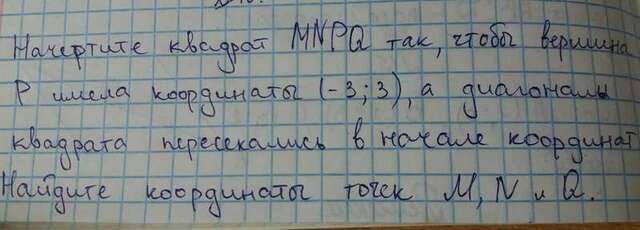 Начертите квадрат MNPQ так, чтобы вершина
P имела координаты (-3;3), а диагонали
квадрата пересекались в начале координат
Найдите координаты точек M, N и Q.